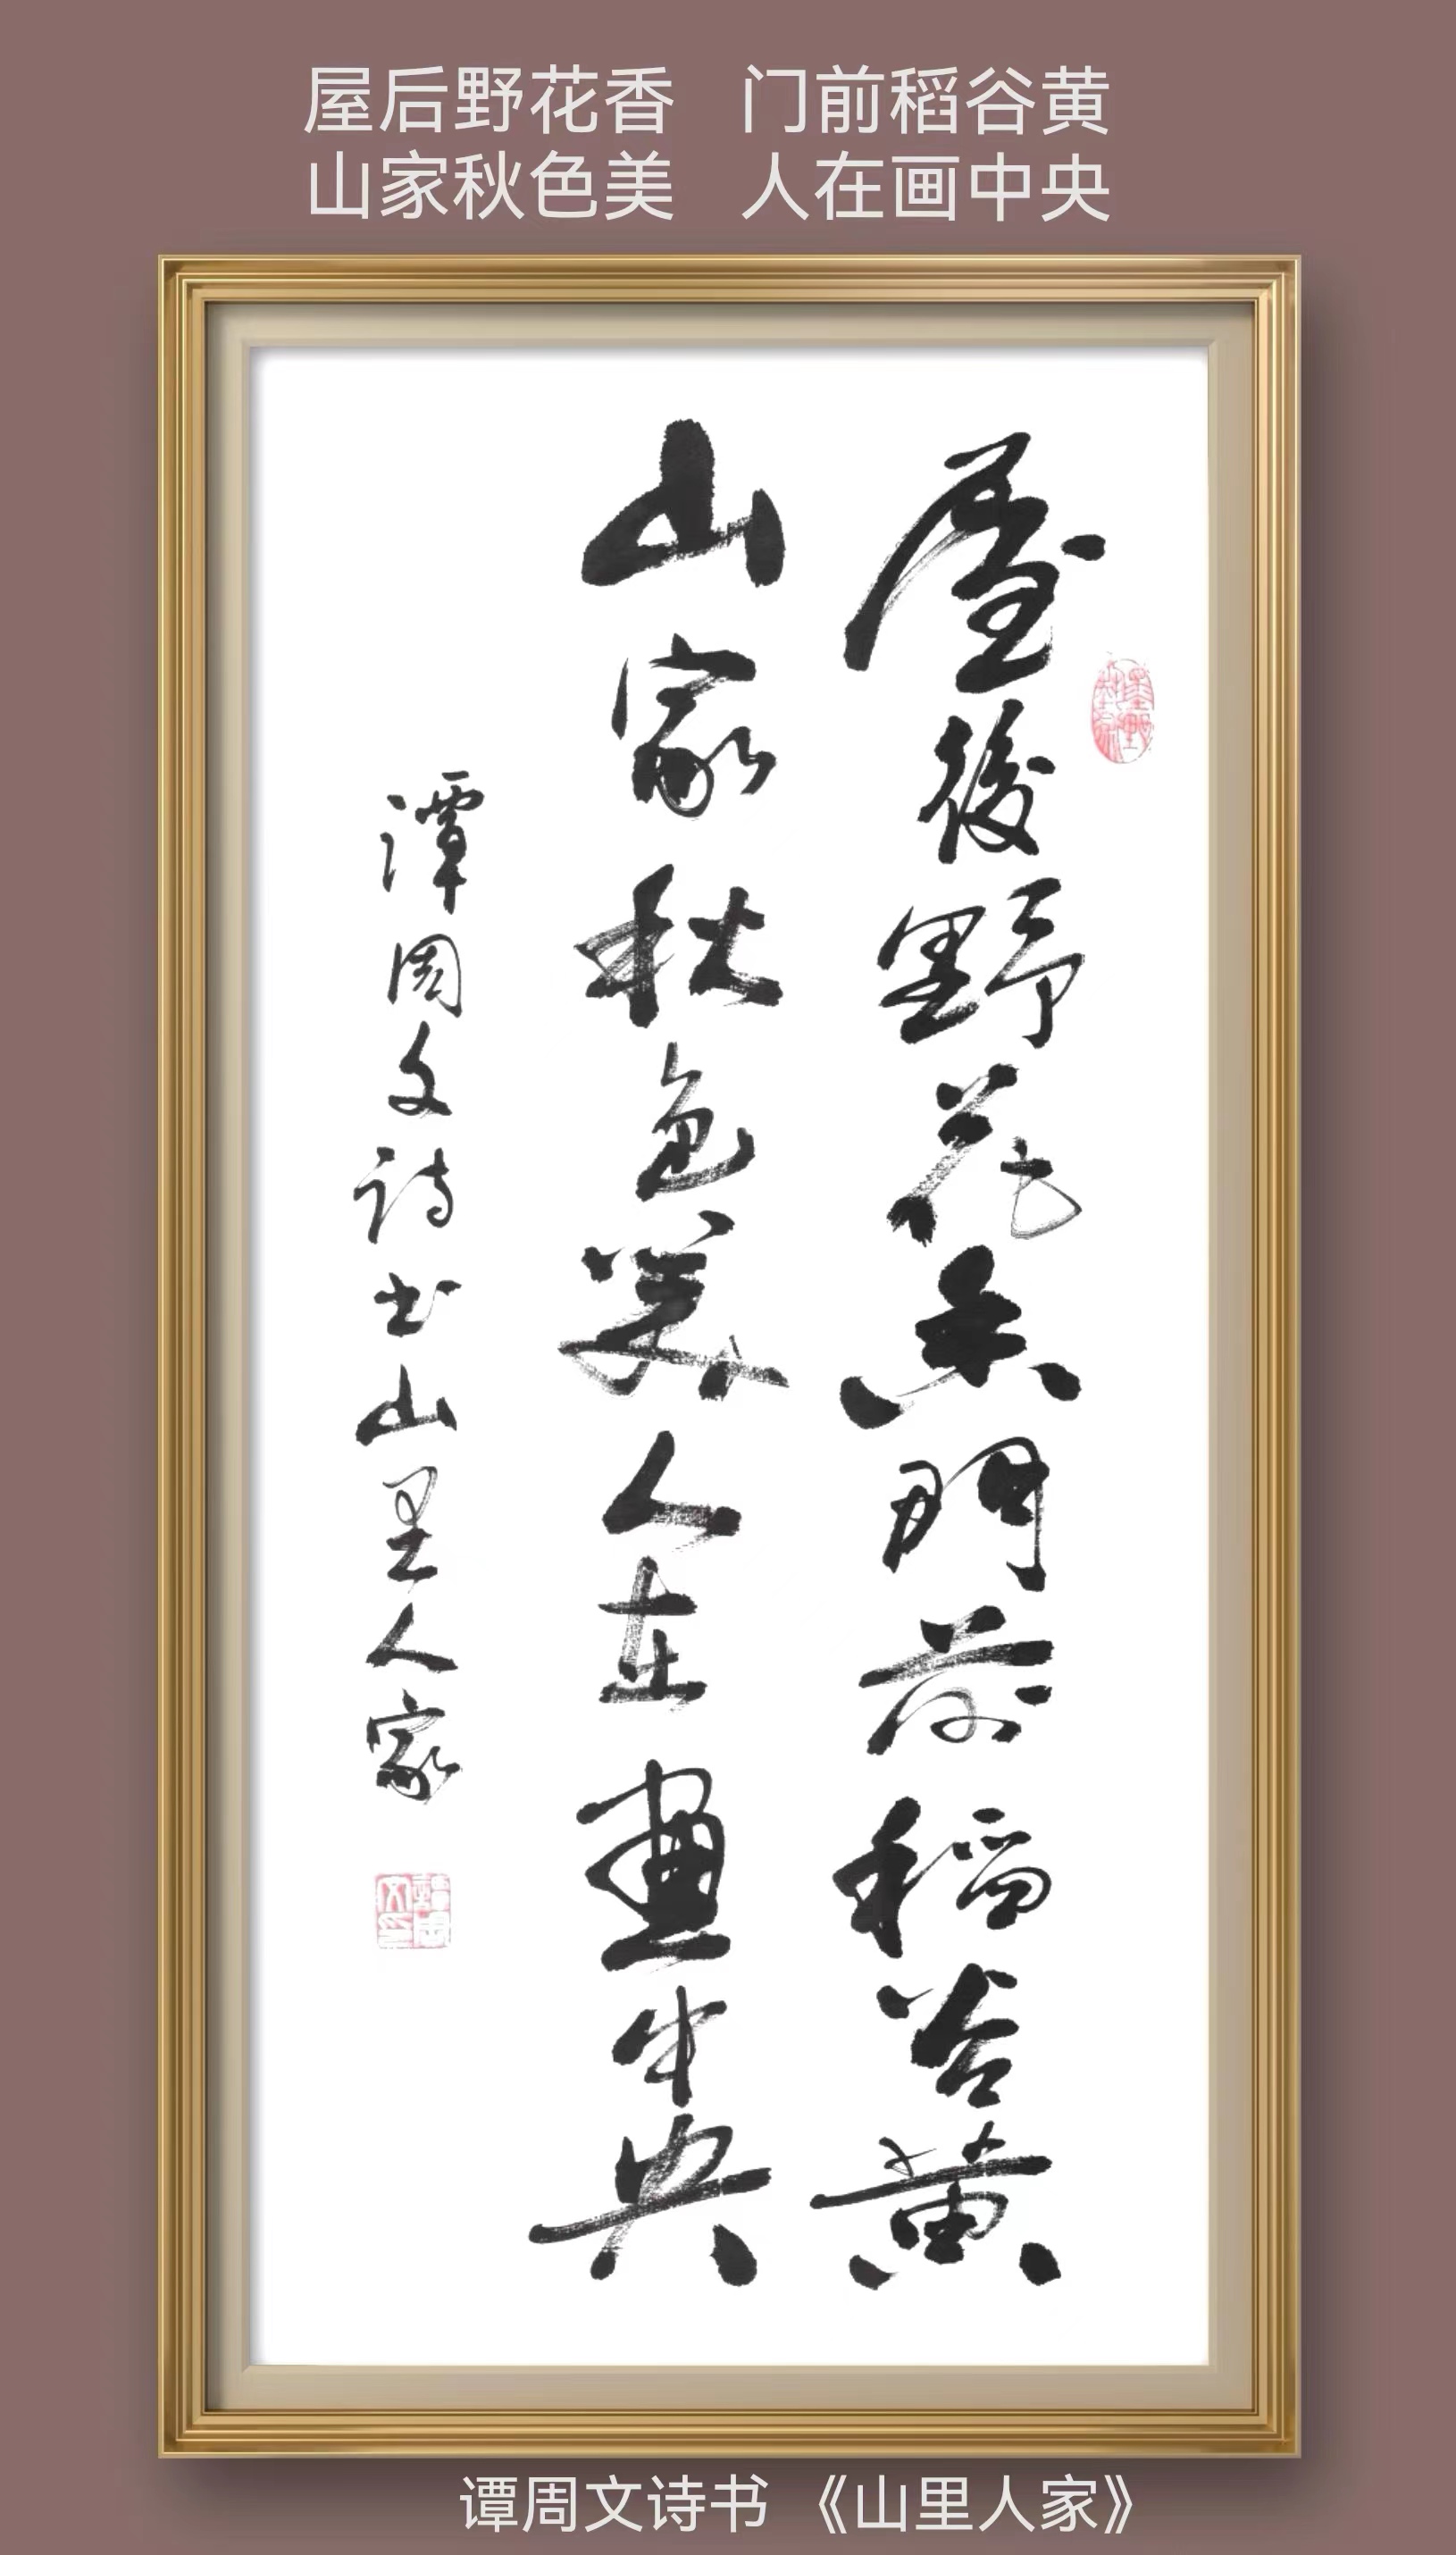 屋后野花香 门前稻谷黄
山家秋色美 人在画中央
屋後野花香門前稻谷黄
山家秋色美人在畫中央
谭周文诗书山里人家
谭周文诗书《山里人家》